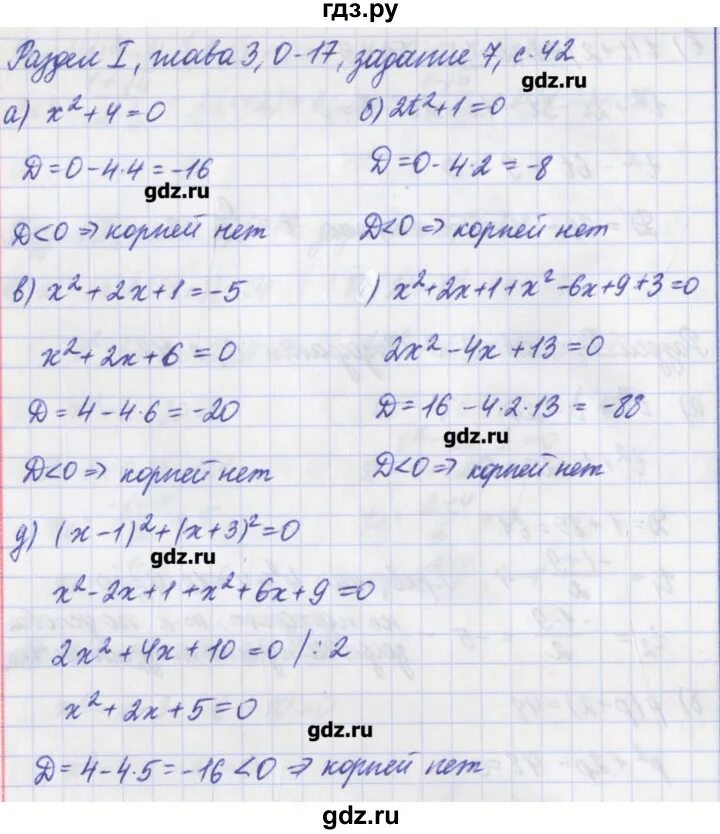 гдз.ру
Раздел I, глава 3, О-17, задание 7, с. 42
gdz.ru
а) x² + 4 = 0
D = 0 - 4·4 = -16
gdz.ru
D<0 ⇒ корней нет
б) 2t² + 1 = 0
D = 0 - 4·2 = -8
D<0 ⇒ корней нет
в) x² + 2x + 1 = -5
x² + 2x + 6 = 0
D = 4 - 4·6 = -20
D<0 ⇒ корней нет
) x² + 2x + 1 + x² - 6x + 9 + 3 = 0
2x² - 4x + 13 = 0
D = 16 - 4·2·13 = -88
gdz.ru
D<0 ⇒ корней нет
д) (x - 1)² + (x + 3)² = 0
gdz.ru
x² - 2x + 1 + x² + 6x + 9 = 0
2x² + 4x + 10 = 0 / : 2
x² + 2x + 5 = 0
gdz.ru
D = 4 - 4·5 = -16 < 0 ⇒ корней нет
gdz.ru